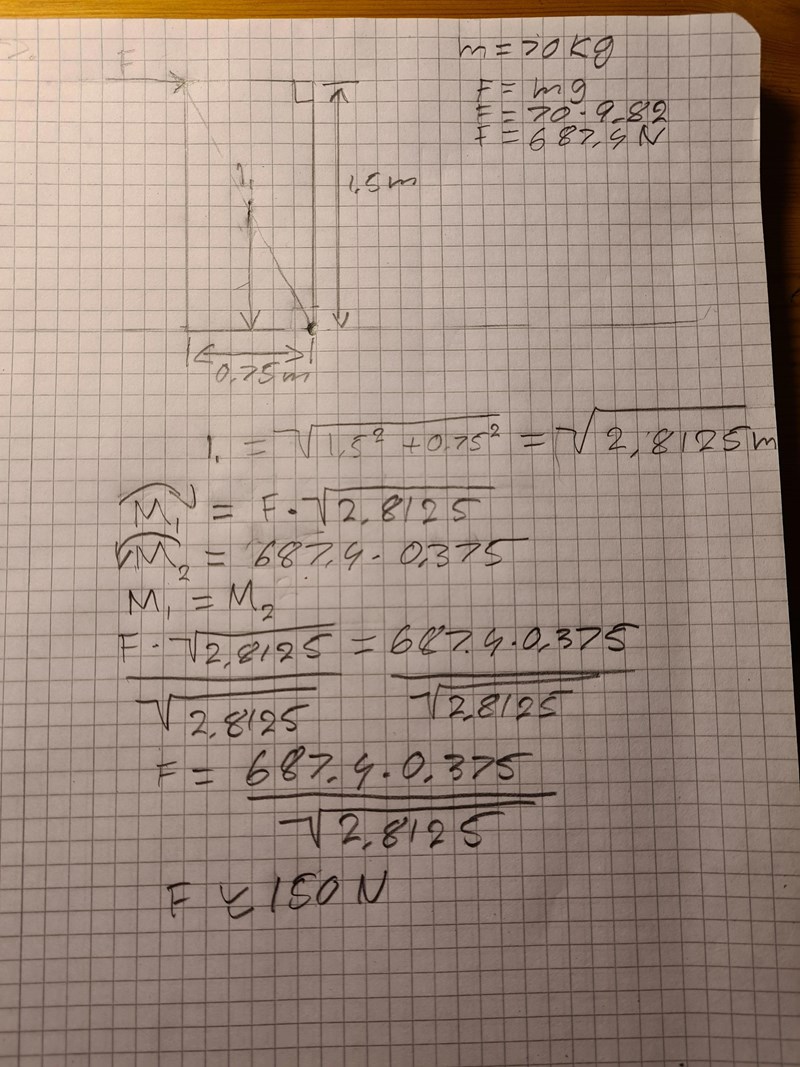 m = 70 kg
F = mg
F = 70 · 9.82
F = 687.4 N
F
1,5 m
0.75 m
l₁ = √(1,5² + 0.75²) = √2,8125 m
M₁ = F · √2,8125
M₂ = 687.4 · 0.375
M₁ = M₂
F · √2,8125 / √2,8125 = 687.4 · 0,375 / √2,8125
F = 687.4 · 0.375 / √2,8125
F ≈ 150 N